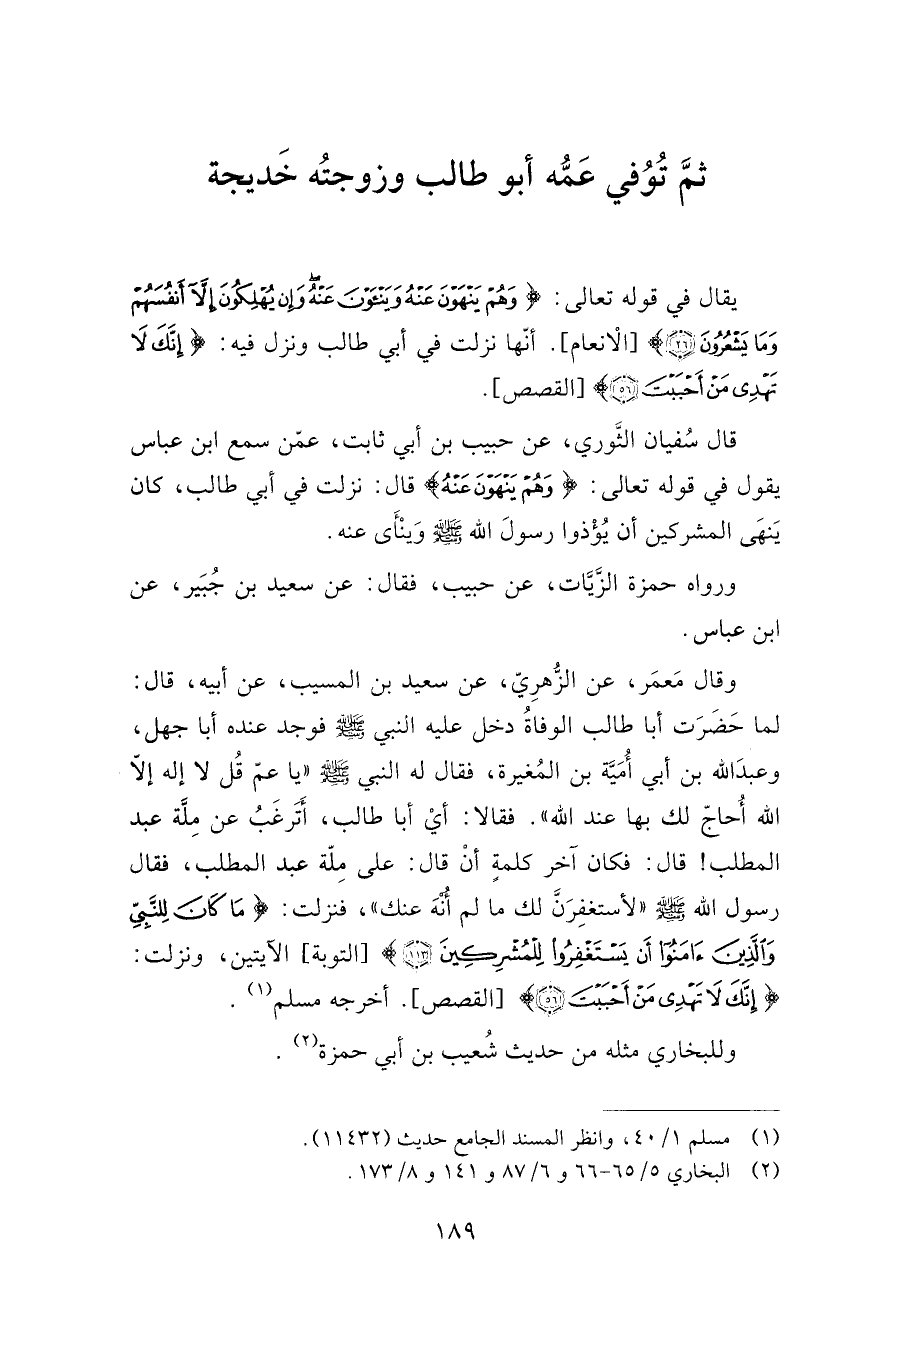 ثمَّ تُوُفي عَمُّه أبو طالب وزوجتُه خَديجة
يقال في قوله تعالى: ﴿ وَهُمْ يَنْهَوْنَ عَنْهُ وَيَنْـَٔوْنَ عَنْهُ ۖ وَإِن يُهْلِكُونَ إِلَّآ أَنفُسَهُمْ
وَمَا يَشْعُرُونَ ﴿٢٦﴾﴾ [الأنعام]. أنّها نزلت في أبي طالب ونزل فيه: ﴿ إِنَّكَ لَا
تَهْدِى مَنْ أَحْبَبْتَ ﴿٥٦﴾﴾ [القصص].
قال سُفيان الثَّوري، عن حبيب بن أبي ثابت، عمّن سمع ابن عباس
يقول في قوله تعالى: ﴿ وَهُمْ يَنْهَوْنَ عَنْهُ﴾ قال: نزلت في أبي طالب، كان
يَنهَى المشركين أن يُؤْذوا رسولَ الله ﷺ وَينْأَى عنه.
ورواه حمزة الزَّيَّات، عن حبيب، فقال: عن سعيد بن جُبَير، عن
ابن عباس.
وقال مَعمَر، عن الزُّهرِيّ، عن سعيد بن المسيب، عن أبيه، قال:
لما حَضَرَت أبا طالب الوفاةُ دخل عليه النبي ﷺ فوجد عنده أبا جهل،
وعبدَالله بن أبي أُمَيَّة بن المُغيرة، فقال له النبي ﷺ «يا عمّ قُل لا إله إلاّ
الله أُحاجّ لك بها عند الله». فقالا: أيْ أبا طالب، أَتَرغَبُ عن مِلَّة عبد
المطلب! قال: فكان آخر كلمةٍ أنْ قال: على مِلّة عبد المطلب، فقال
رسول الله ﷺ «لأستغفِرَنَّ لك ما لم أُنْهَ عنك»، فنزلت: ﴿ مَا كَانَ لِلنَّبِيِّ
وَٱلَّذِينَ ءَامَنُوٓا۟ أَن يَسْتَغْفِرُوا۟ لِلْمُشْرِكِينَ ﴿١١٣﴾ ﴾ [التوبة] الآيتين، ونزلت:
﴿ إِنَّكَ لَا تَهْدِى مَنْ أَحْبَبْتَ ﴿٥٦﴾﴾ [القصص]. أخرجه مسلم(١) .
وللبخاري مثله من حديث شُعيب بن أبي حمزة(٢) .
(١) مسلم ١/ ٤٠، وانظر المسند الجامع حديث (١١٤٣٢).
(٢) البخاري ٥/ ٦٥-٦٦ و ٦/ ٨٧ و ١٤١ و ٨/ ١٧٣ .
١٨٩